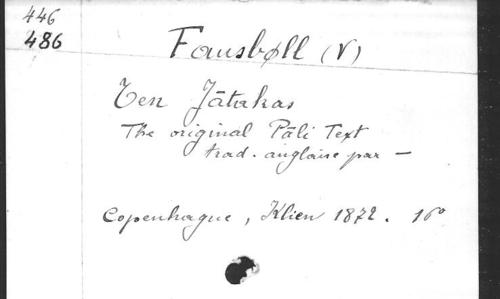 446
486
Fausbøll (V)
Ten Jātakas
The original Pāli Text
trad. anglaise par —
Copenhague, Klien 1872. 16°